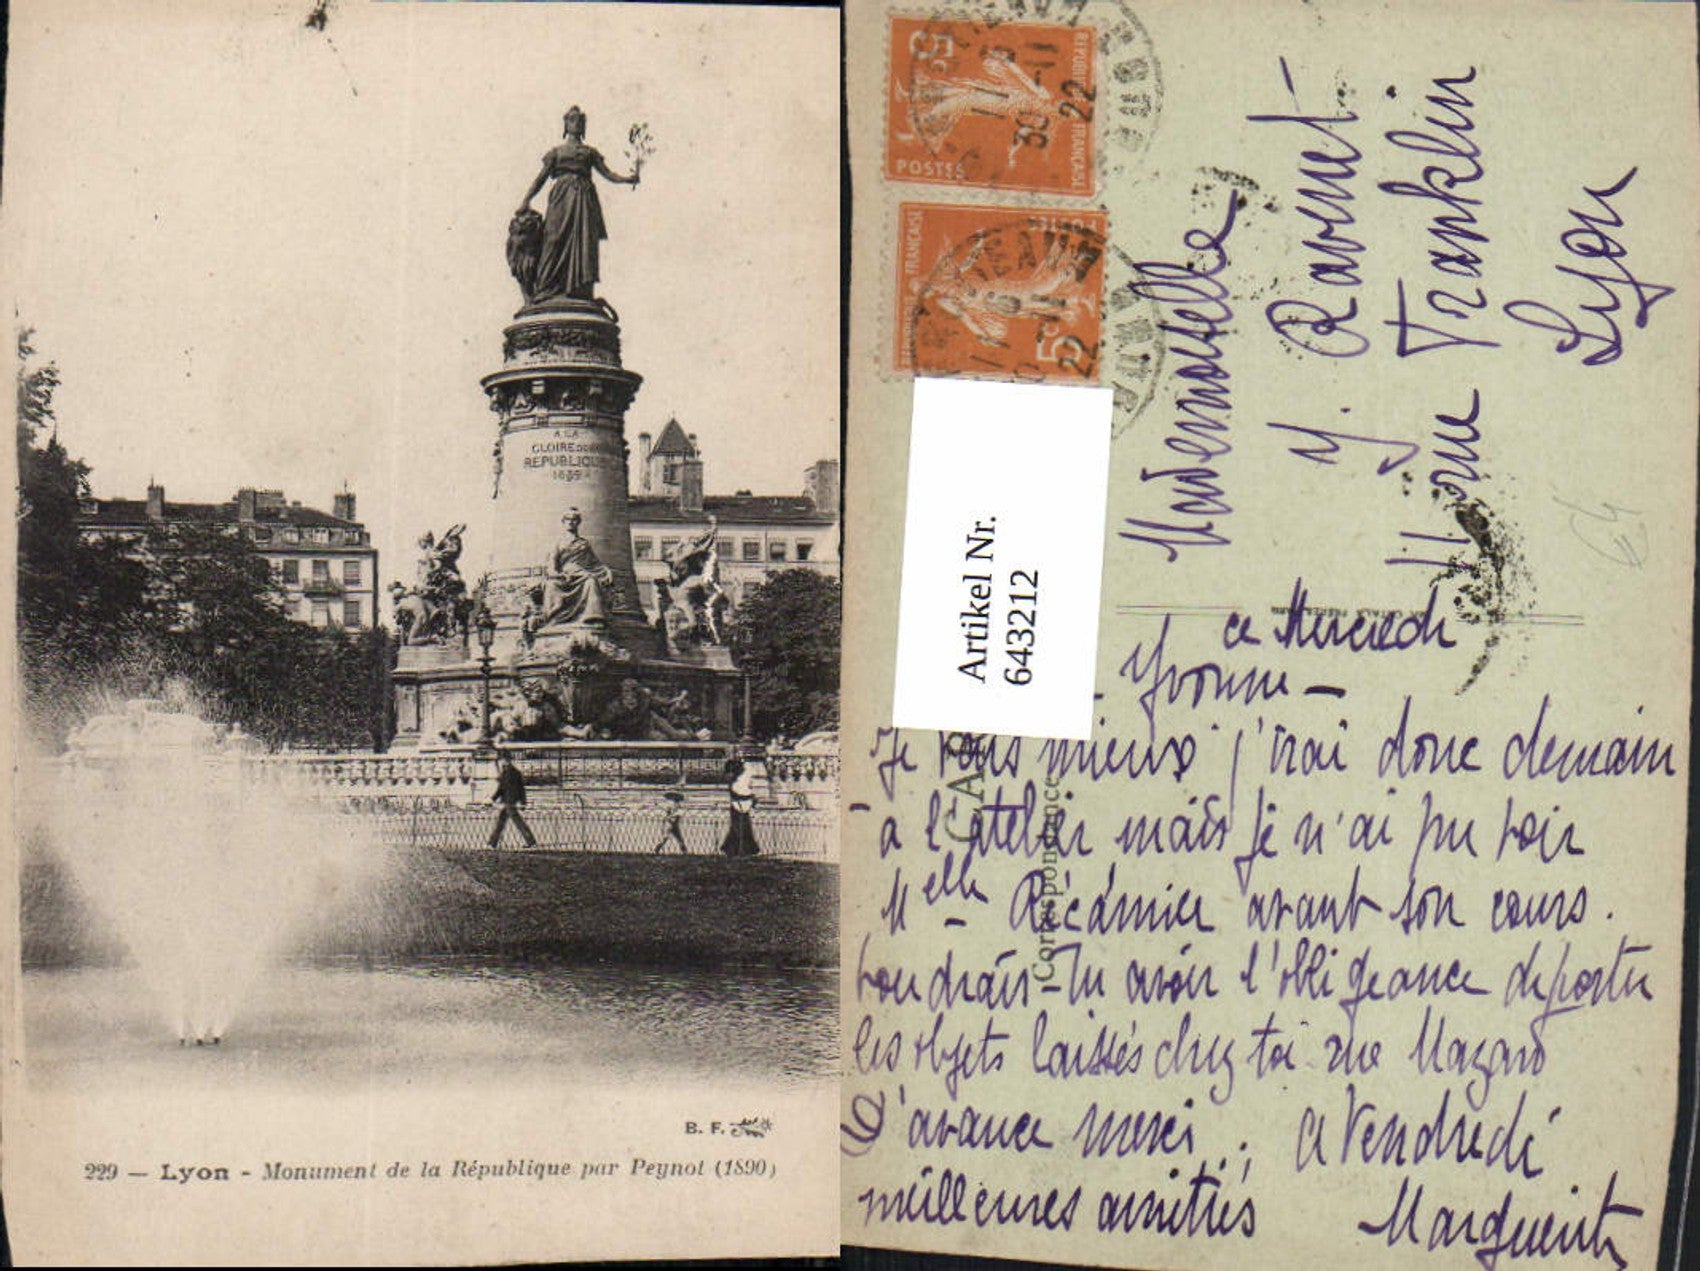 A LA
GLOIRE DE LA
REPUBLIQUE
1889
B. F.
229 — Lyon - Monument de la République par Peynot (1890)
5c
POSTES
REPUBLIQUE FRANÇAISE
11
30 -11
22
FRANÇAISE
5c
11
-11
22
Artikel Nr.
643212
CA
Correspondance
Mademoiselle
Y. Ravenet
11 rue Franklin
Lyon
ce Mercredi
- Yvonne -
Je vais mieux j'irai donc demain
à l'atelier mais je n'ai pu voir
Melle Récamier avant son cours.
voudrais-tu avoir l'obligeance de porter
les objets laissés chez toi rue Mazard
d'avance merci. A Vendredi
meilleures amitiés
Marguerite